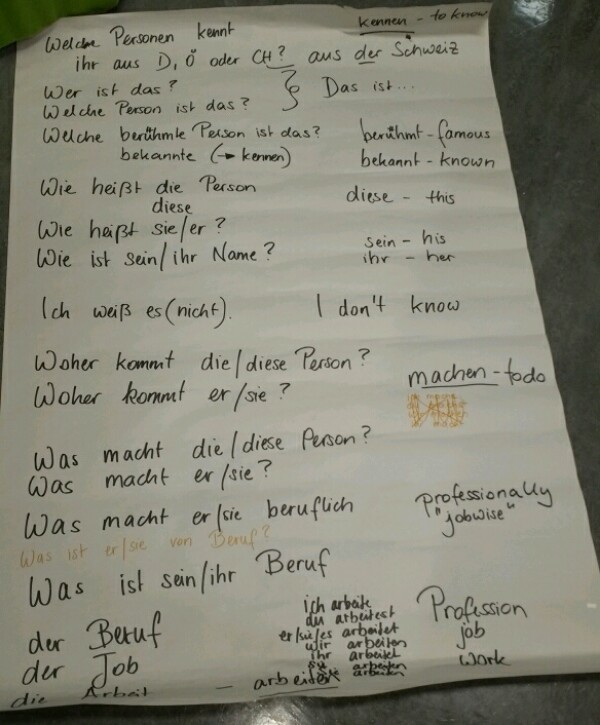 Welche Personen kennt kennen - to know
ihr aus D, Ö oder CH? aus der Schweiz
Wer ist das? Das ist...
Welche Person ist das?
Welche berühmte Person ist das? berühmt - famous
bekannte (→ kennen) bekannt - known
Wie heißt die Person
diese diese - this
Wie heißt sie/er?
sein - his
Wie ist sein/ihr Name? ihr - her
Ich weiß es (nicht). I don't know
Woher kommt die/diese Person?
Woher kommt er/sie? machen - to do
Was macht die/diese Person?
Was macht er/sie?
Was macht er/sie beruflich Professionally
"jobwise"
Was ist er/sie von Beruf?
Was ist sein/ihr Beruf
ich arbeite
du arbeitest
er/sie/es arbeitet
wir arbeiten
ihr arbeitet
arbeiten
der Beruf Profession
der Job job
die Arbeit - arbeiten work